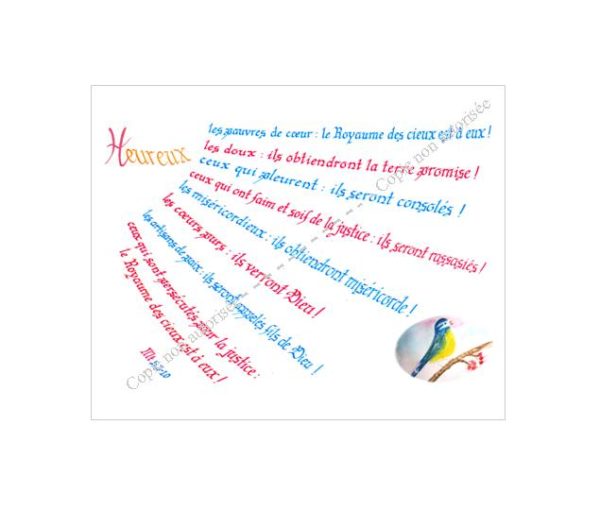 Heureux
les pauvres de cœur : le Royaume des cieux est à eux !
les doux : ils obtiendront la terre promise !
ceux qui pleurent : ils seront consolés !
ceux qui ont faim et soif de la justice : ils seront rassasiés !
les miséricordieux : ils obtiendront miséricorde !
les cœurs purs : ils verront Dieu !
les artisans de paix : ils seront appelés fils de Dieu !
ceux qui sont persécutés pour la justice :
le Royaume des cieux est à eux !
Mt 5,3-10
Copie non autorisée
Copie non autorisée